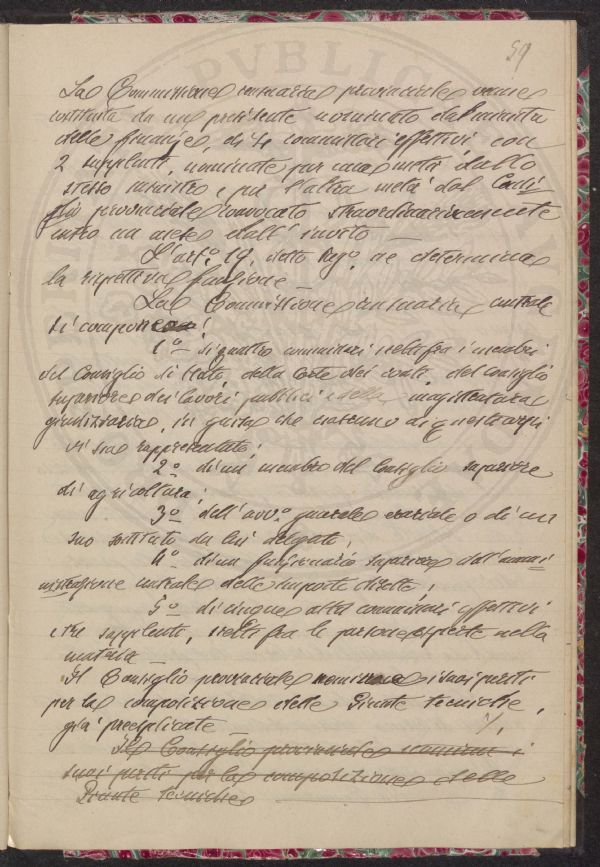 59
La Commissione censuaria provinciale viene
costituita da un presidente nominato dal ministro
delle finanze, di 4 commissari effettivi con
2 supplenti, nominati per una metà dallo
stesso ministro e per l'altra metà dal Consi
glio provinciale convocato straordinariamente
entro un mese dall'invito —
L'art.º 19. detto Reg.º ne determina
la rispettiva funzione —
La Commissione censuaria centrale
si compone:
1º — di quattro commissari scelti fra i membri
del Consiglio di Stato, della Corte dei conti, del Consiglio
superiore dei lavori pubblici e della magistratura
giudiziaria, in guisa che ciascuno di questi corpi
vi sia rappresentato;
2º di un membro del Consiglio superiore
di agricoltura;
3º dell'avv.º generale erariale o di un
suo sostituto da lui delegato;
4º di un funzionario superiore dell'ammi
nistrazione centrale delle imposte dirette;
5º di cinque altri commissari effettivi
e tre supplenti, scelti fra le persone esperte nella
materia —
Il Consiglio provinciale nomina i suoi periti
per la composizione delle Giunte tecniche,
già precisate —
Il Consiglio provinciale nomina i
suoi periti per la composizione delle
Giunte tecniche